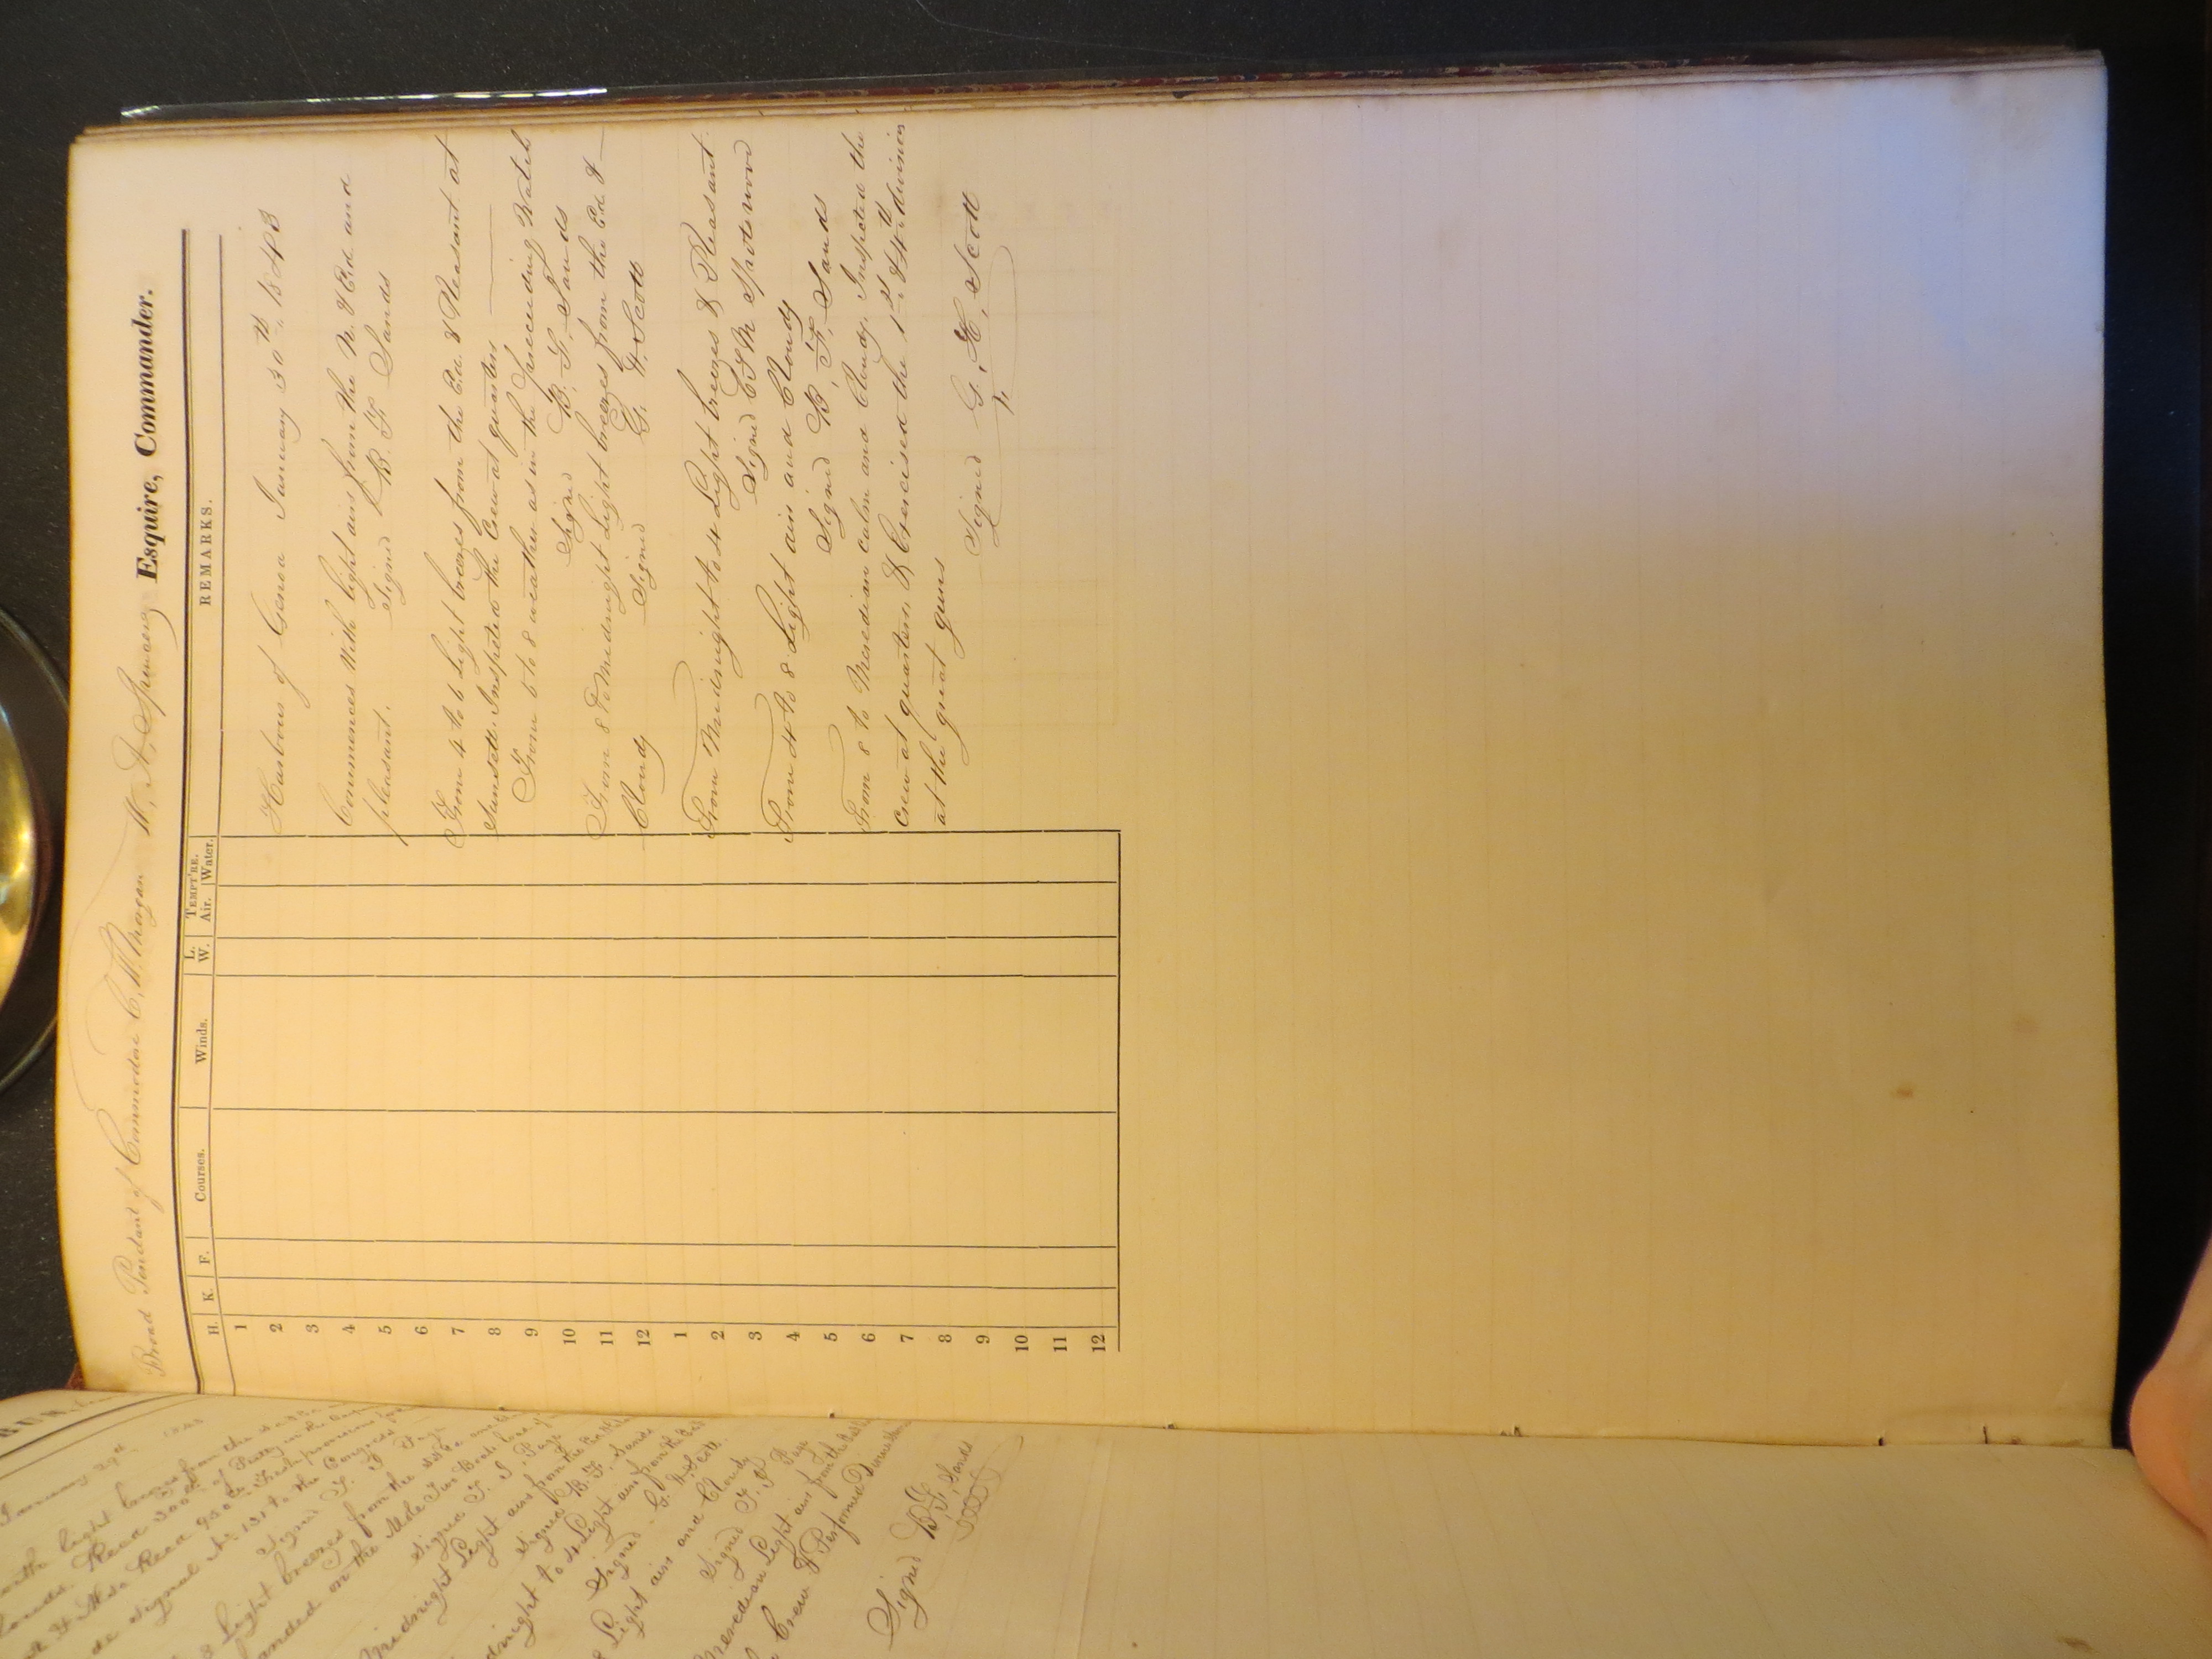 Broad Pendant of Commodore C. W. Morgan W. A. Spencer Esquire, Commander.
H. K. F. Courses. Winds. L. W. TEMPT'RE. Air. Water. REMARKS.
1
2
3
4
5
6
7
8
9
10
11
12
1
2
3
4
5
6
7
8
9
10
11
12
Harbour of Genoa January 30th 1843
Commences With light airs from the N. & Ed. and
pleasant. Signed B. F. Sands
From 4 to 6 Light breezes from the Ed. & Pleasant at
Sunsett Inspected the Crew at quarters
From 6 to 8 weather as in the preceeding Watch
Signed B. F. Sands
From 8 To Midnight Light breezes from the Ed &
Cloudy Signed G. H. Scott
From Midnight to 4 Light breezes & Pleasant
Signed C F M Spotswood
From 4 to 8 Light airs and Cloudy
Signed B. F. Sands
From 8 to Meredian Calm and Cloudy. Inspected the
Crew at quarters & Exercised the 1st & 4th division
at the great guns
Signed G. H. Scott
January 29th
with light breezes from the
Signed T. J. Page
Light breezes from the
Midnight Light airs from the
Signed B. F. Sands
to 4 Light airs from the
Signed G. H. Scott.
8 Light airs and Cloudy
Signed T. J. Page
Meredian Light airs from the
Crew & Performed Divine
Signed B. F. Sands